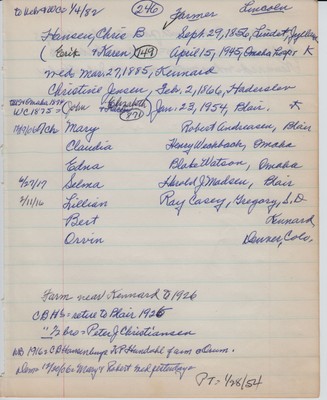 to Nebr & WCo 1/4/82 246 Farmer Lincoln
Hansen, Chris B Sept. 29, 1856, Lindet, Jylland
(Erik & Karen) 149 April 15, 1945, Omaha Hosp
md Mar. 27, 1885, Kennard
Christine Jensen, Feb. 2, 1866, Haderslev
WC 1875 = (John & Elizabeth 871) Jan. 23, 1954, Blair.
Mary Robert Andreasen, Blair
Claudia Henry Washbach, Omaha
Edna Blake Watson, Omaha
4/27/17 Selma Harold J. Madsen, Blair
2/11/16 Lillian Ray Casey, Gregory, S.D
Bert Kennard
Orvin Denver, Colo.
Farm near Kennard to 1926
CBHs = retire to Blair 1925
" ½ bro = Peter J Christiansen
WB 1916 = CB Hansen buys farm
Mary & Robert
PT = 1/28/54